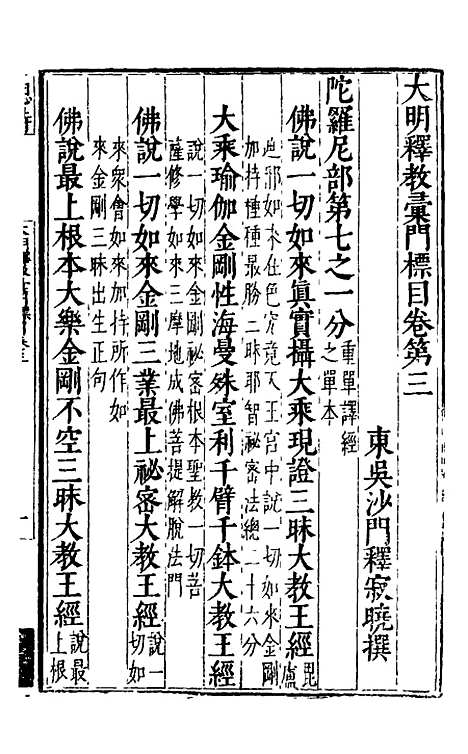 大明釋教彙門標目卷第三
東吳沙門釋寂曉撰
陀羅尼部第七之一分重單譯經之單本
佛說一切如來眞實攝大乘現證三昧大教王經毘盧
遮那如來住色究竟天王宮中說一切如來金剛
加持種種最勝三昧耶智祕密法總二十六分
大乘瑜伽金剛性海曼殊室利千臂千鉢大教王經
說一切如來金剛祕密根本聖教一切菩
薩修學如來三摩地成佛菩提解脫法門
佛說一切如來金剛三業最上祕密大教王經說一切如
來衆會如來加持所作如
來金剛三昧出生正句
佛說最上根本大樂金剛不空三昧大教王經說最上根